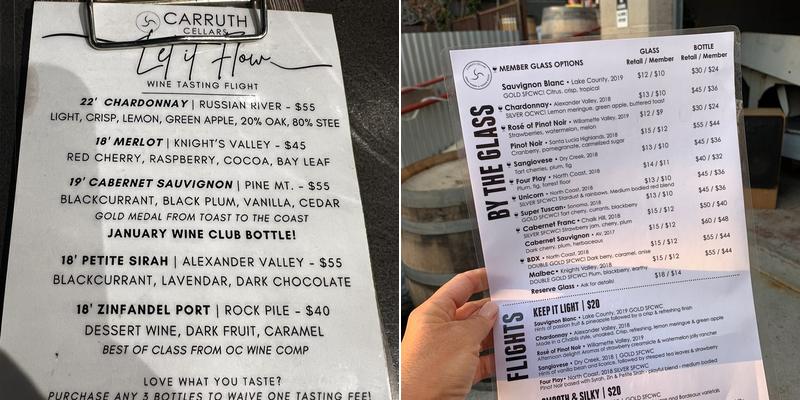 CARRUTH
CELLARS
Let it Flow
WINE TASTING FLIGHT
22' CHARDONNAY | RUSSIAN RIVER - $55
LIGHT, CRISP, LEMON, GREEN APPLE, 20% OAK, 80% STEE
18' MERLOT | KNIGHT'S VALLEY - $45
RED CHERRY, RASPBERRY, COCOA, BAY LEAF
19' CABERNET SAUVIGNON | PINE MT. - $55
BLACKCURRANT, BLACK PLUM, VANILLA, CEDAR
GOLD MEDAL FROM TOAST TO THE COAST
JANUARY WINE CLUB BOTTLE!
18' PETITE SIRAH | ALEXANDER VALLEY - $55
BLACKCURRANT, LAVENDAR, DARK CHOCOLATE
18' ZINFANDEL PORT | ROCK PILE - $40
DESSERT WINE, DARK FRUIT, CARAMEL
BEST OF CLASS FROM OC WINE COMP
LOVE WHAT YOU TASTE?
PURCHASE ANY 3 BOTTLES TO WAIVE ONE TASTING FEE!
MEMBER GLASS OPTIONS
GLASS
Retail / Member
BOTTLE
Retail / Member
BY THE GLASS
Sauvignon Blanc • Lake County, 2019 $12 / $10 $30 / $24
GOLD SFCWC! Citrus, crisp, tropical
Chardonnay • Alexander Valley, 2018 $13 / $10 $45 / $36
SILVER OCWC! Lemon meringue, green apple, buttered toast
Rosé of Pinot Noir • Willamette Valley, 2019 $12 / $9 $30 / $24
Strawberries, watermelon, melon
Pinot Noir • Santa Lucia Highlands, 2018 $15 / $12 $55 / $44
Cranberry, pomegranate, carmelized sugar
Sangiovese • Dry Creek, 2018 $13 / $10 $45 / $36
Tart cherries, plum, fig
Four Play • North Coast, 2018 $14 / $11 $40 / $32
Plum, fig, forest floor
Unicorn • North Coast, 2018 $13 / $10 $45 / $36
SILVER SFCWC! Stardust & rainbows. Medium bodied red blend
Super Tuscan • Sonoma, 2018 $13 / $10 $45 / $36
GOLD SFCWC! Tart cherry, currants, blackberry
Cabernet Franc • Chalk Hill, 2018 $15 / $12 $50 / $40
SILVER SFCWC! Strawberry jam, cherry, plum
Cabernet Sauvignon • AV, 2017 $15 / $12 $60 / $48
Dark cherry, plum, herbaceous
BDX • North Coast, 2018 $15 / $12 $55 / $44
DOUBLE GOLD SFCWC! Dark berry, caramel, anise
Malbec • Knights Valley, 2018 $15 / $12 $55 / $44
DOUBLE GOLD SFCWC! Plum, blackberry, earthy
Reserve Glass • Ask for details! $18 / $14
FLIGHTS
KEEP IT LIGHT | $20
Sauvignon Blanc • Lake County, 2019 GOLD SFCWC
Hints of passion fruit & pineapple followed by a crisp & refreshing finish
Chardonnay • Alexander Valley, 2018
Made in a Chablis style, unoaked. Crisp, refreshing, lemon meringue & green apple
Rosé of Pinot Noir • Willamette Valley, 2019
Afternoon delight! Aromas of strawberry creamsicle & watermelon jolly rancher
Sangiovese • Dry Creek, 2018 | GOLD SFCWC
Hints of vanilla bean and licorice, followed by steeped tea leaves & strawberry
Four Play • North Coast, 2018 SILVER SFCWC
Pinot Noir based with Syrah, Zin & Petite Sirah - playful blend - medium bodied
SMOOTH & SILKY | $20